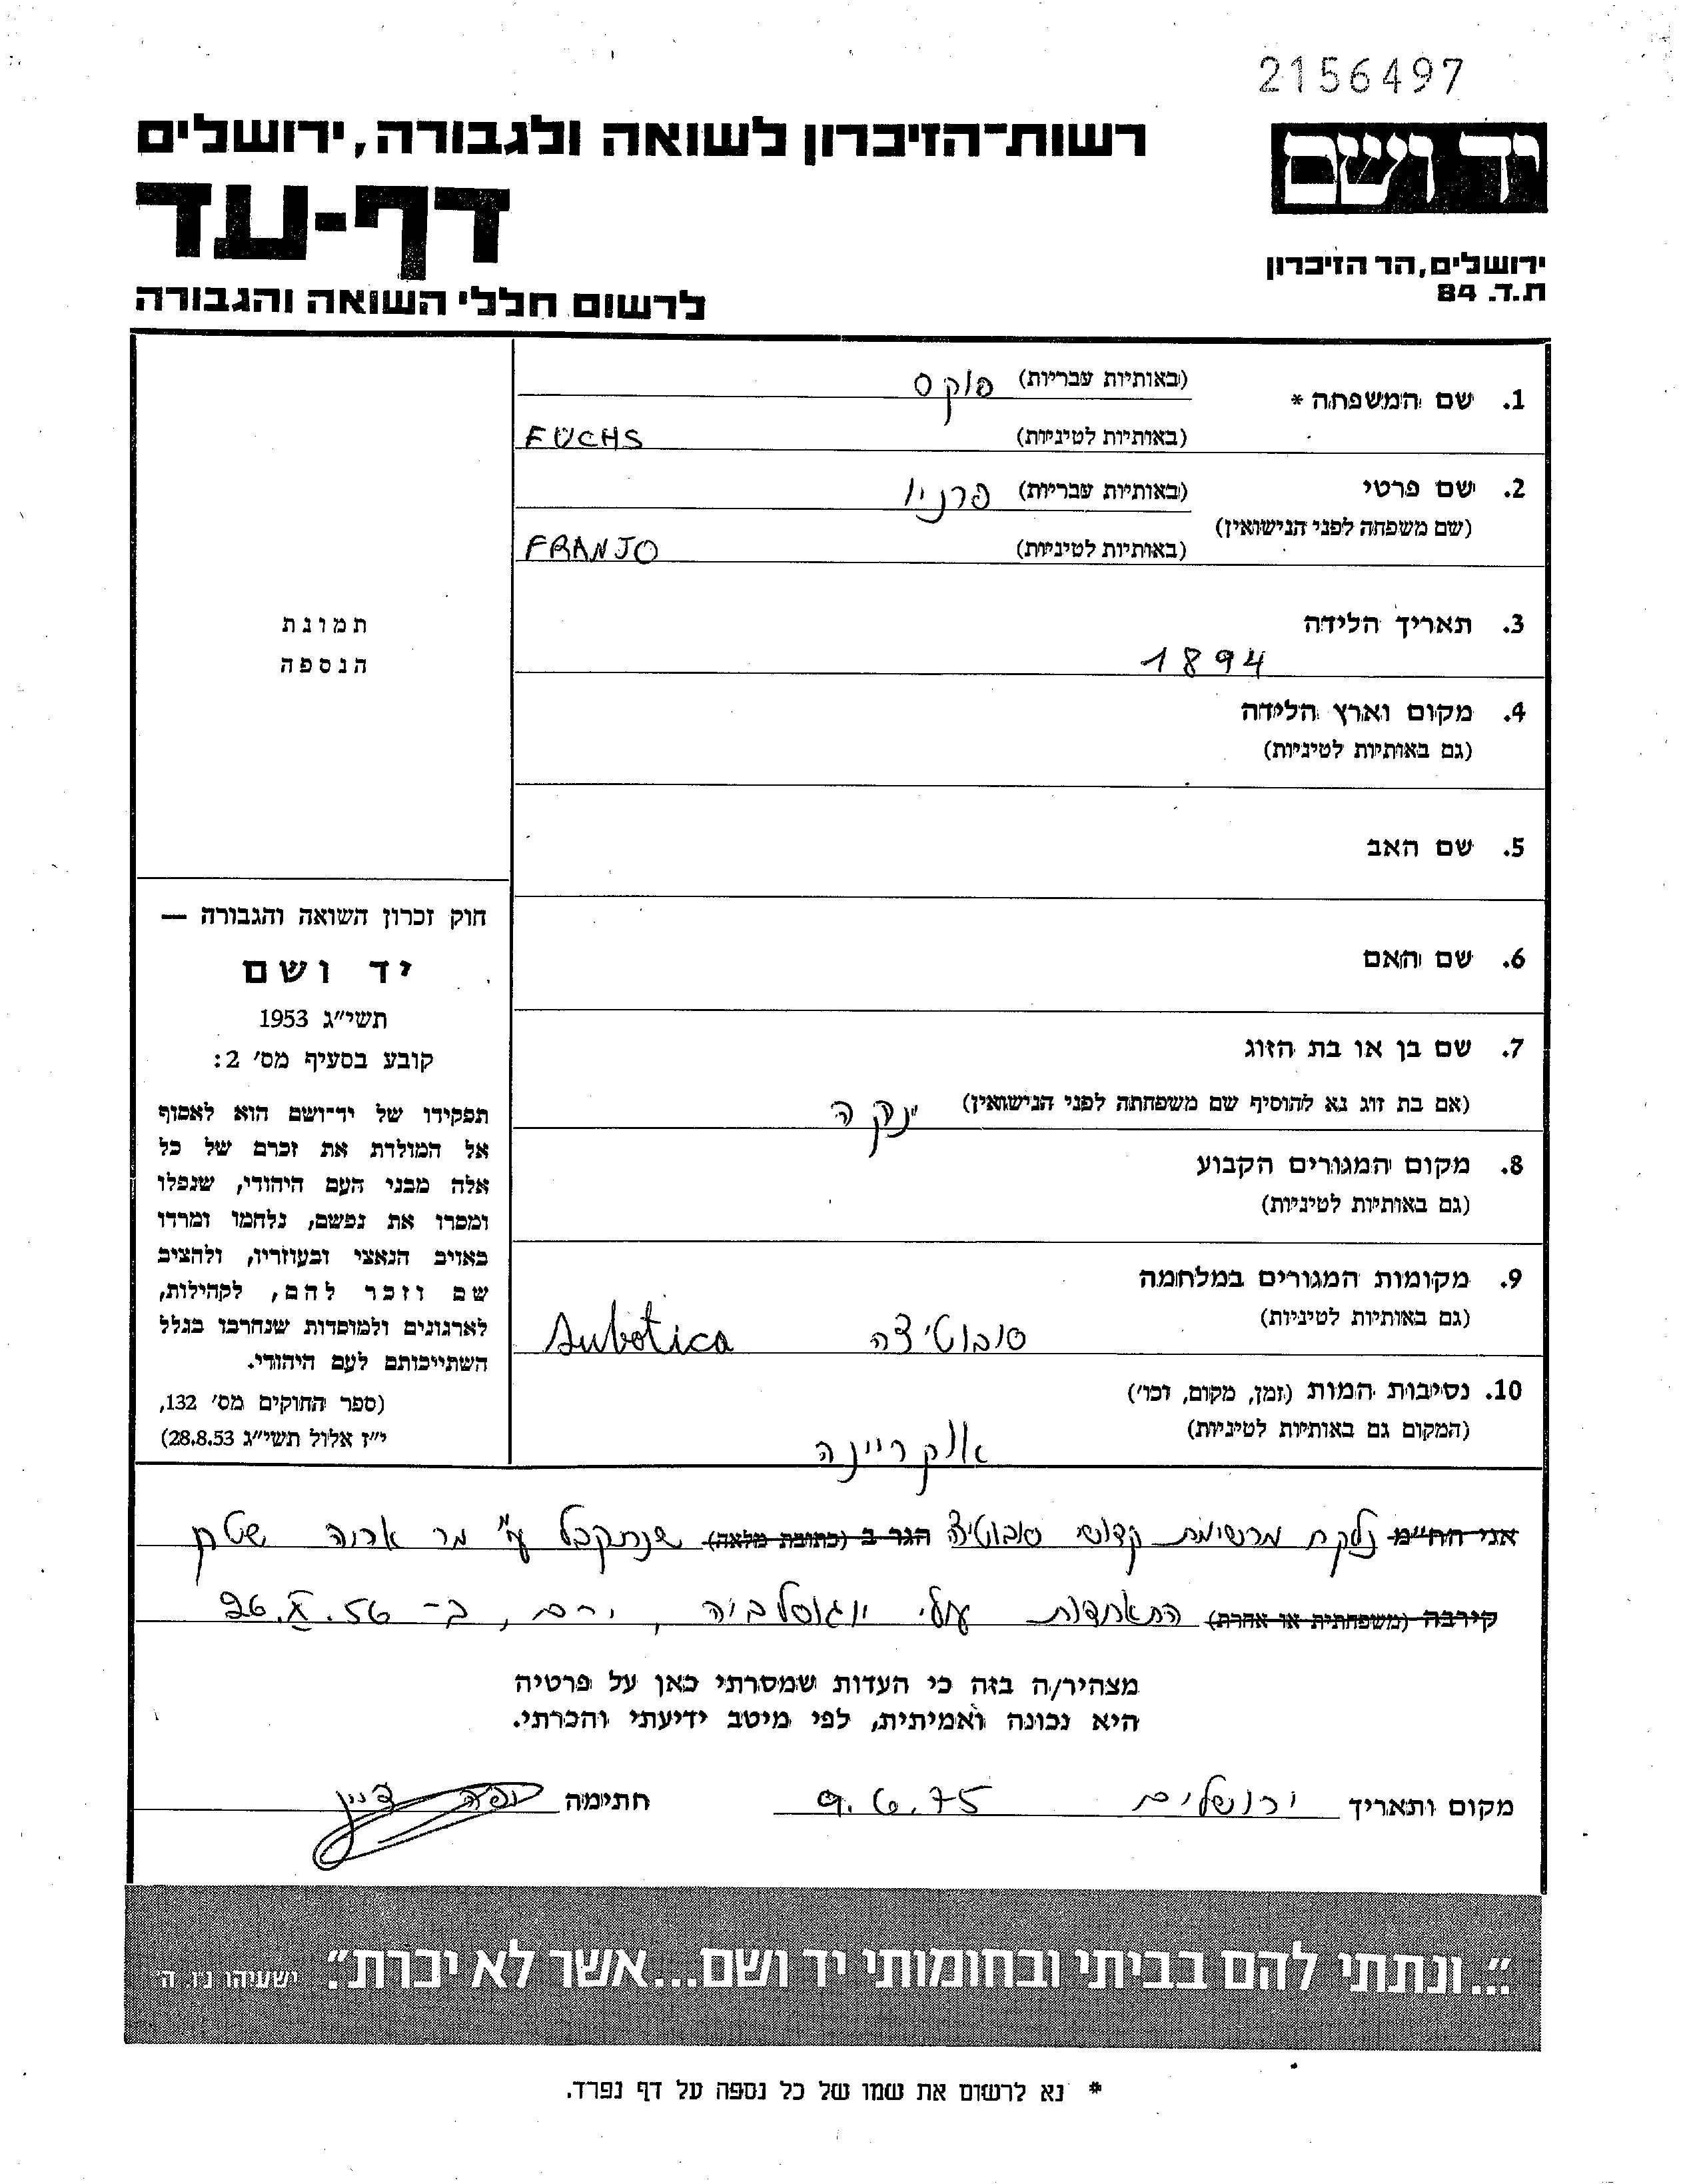 2156497
יד ושם
רשות־הזיכרון לשואה ולגבורה, ירושלים
דף-עד
ירושלים, הר הזיכרון
ת.ד. 84
לרשום חללי השואה והגבורה
1. שם המשפחה * (באותיות עבריות) פוקס
(באותיות לטיניות) FUCHS
2. שם פרטי (באותיות עבריות) פרניו
(שם משפחה לפני הנישואין)
(באותיות לטיניות) FRANJO
3. תאריך הלידה
1894
4. מקום וארץ הלידה
(גם באותיות לטיניות)
5. שם האב
6. שם האם
7. שם בן או בת הזוג
(אם בת זוג נא להוסיף שם משפחתה לפני הנישואין) ינקה
8. מקום המגורים הקבוע
(גם באותיות לטיניות)
9. מקומות המגורים במלחמה
(גם באותיות לטיניות)
סובוטיצה Subotica
10. נסיבות המות (זמן, מקום, וכו')
(המקום גם באותיות לטיניות)
אוקריינה
תמונת
הנספה
חוק זכרון השואה והגבורה —
יד ושם
תשי"ג 1953
קובע בסעיף מס' 2:
תפקידו של יד־ושם הוא לאסוף
אל המולדת את זכרם של כל
אלה מבני העם היהודי, שנפלו
ומסרו את נפשם, נלחמו ומרדו
באויב הנאצי ובעוזריו, ולהציב
שם וזכר להם, לקהילות,
לארגונים ולמוסדות שנחרבו בגלל
השתייכותם לעם היהודי.
(ספר החוקים מס' 132,
י"ז אלול תשי"ג 28.8.53)
אני הח"מ נלקח מרשימת קדושי סובוטיצה הגר ב (כתובת מלאה) שנתקבל ע"י מר
קירבה (משפחתית או אחרת) התאחדות עולי יוגוסלביה, ירם, ב- 26.X.56
מצהיר/ה בזה כי העדות שמסרתי כאן על פרטיה
היא נכונה ואמיתית, לפי מיטב ידיעתי והכרתי.
מקום ותאריך ירושלים 9.6.75 חתימה
"...ונתתי להם בביתי ובחומותי יד ושם...אשר לא יכרת". ישעיהו נ״ו, ה׳
* נא לרשום את שמו של כל נספה על דף נפרד.